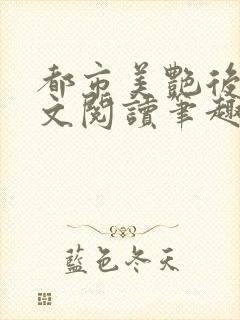 都市美艷後
文閱讀筆趣
藍色冬天